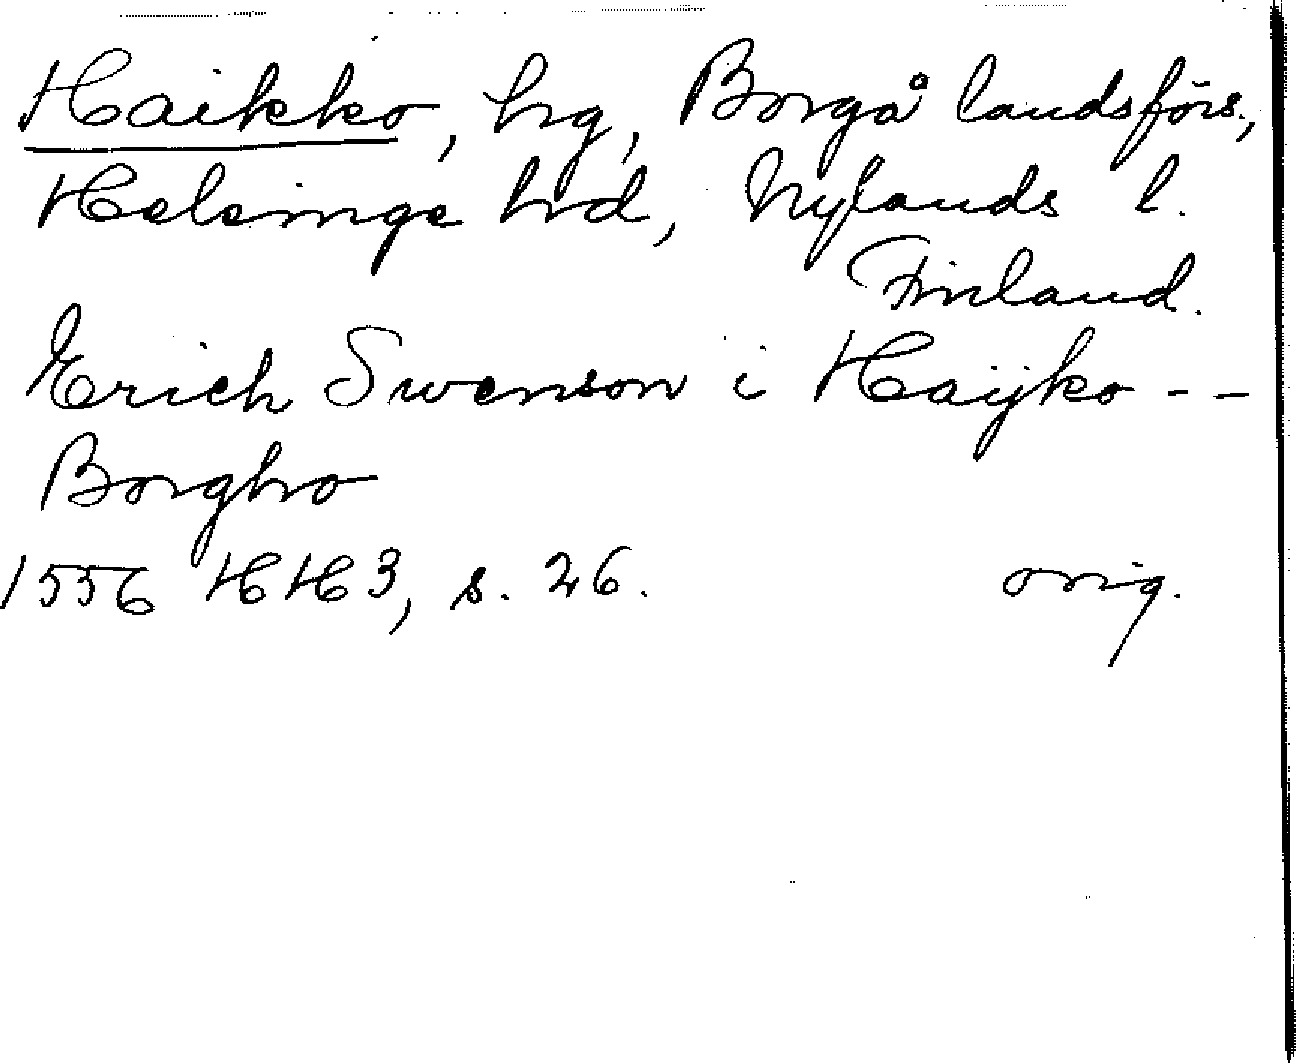 Haikko, hrg, Borgå landsförs.,
Helsinge hrd, Nylands l.
Finland.
Erich Swenson i Haijko --
Borgho
1556 HH3, s. 26. orig.